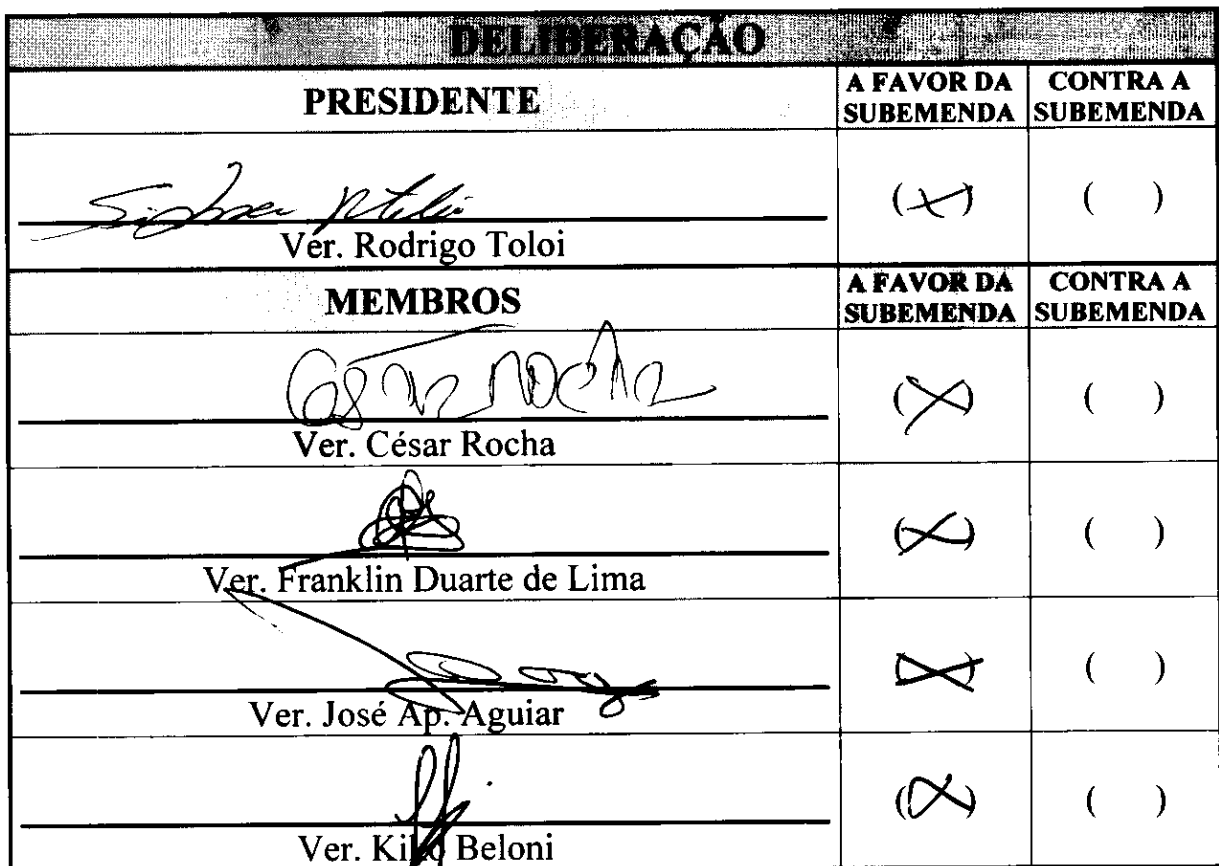 DELIBERAÇÃO
PRESIDENTE
A FAVOR DA SUBEMENDA
CONTRA A SUBEMENDA
(X) ( )
Ver. Rodrigo Toloi
MEMBROS
A FAVOR DA SUBEMENDA
CONTRA A SUBEMENDA
César Rocha
(X) ( )
Ver. César Rocha
(X) ( )
Ver. Franklin Duarte de Lima
(X) ( )
Ver. José Ap. Aguiar
(X) ( )
Ver. Kiko Beloni